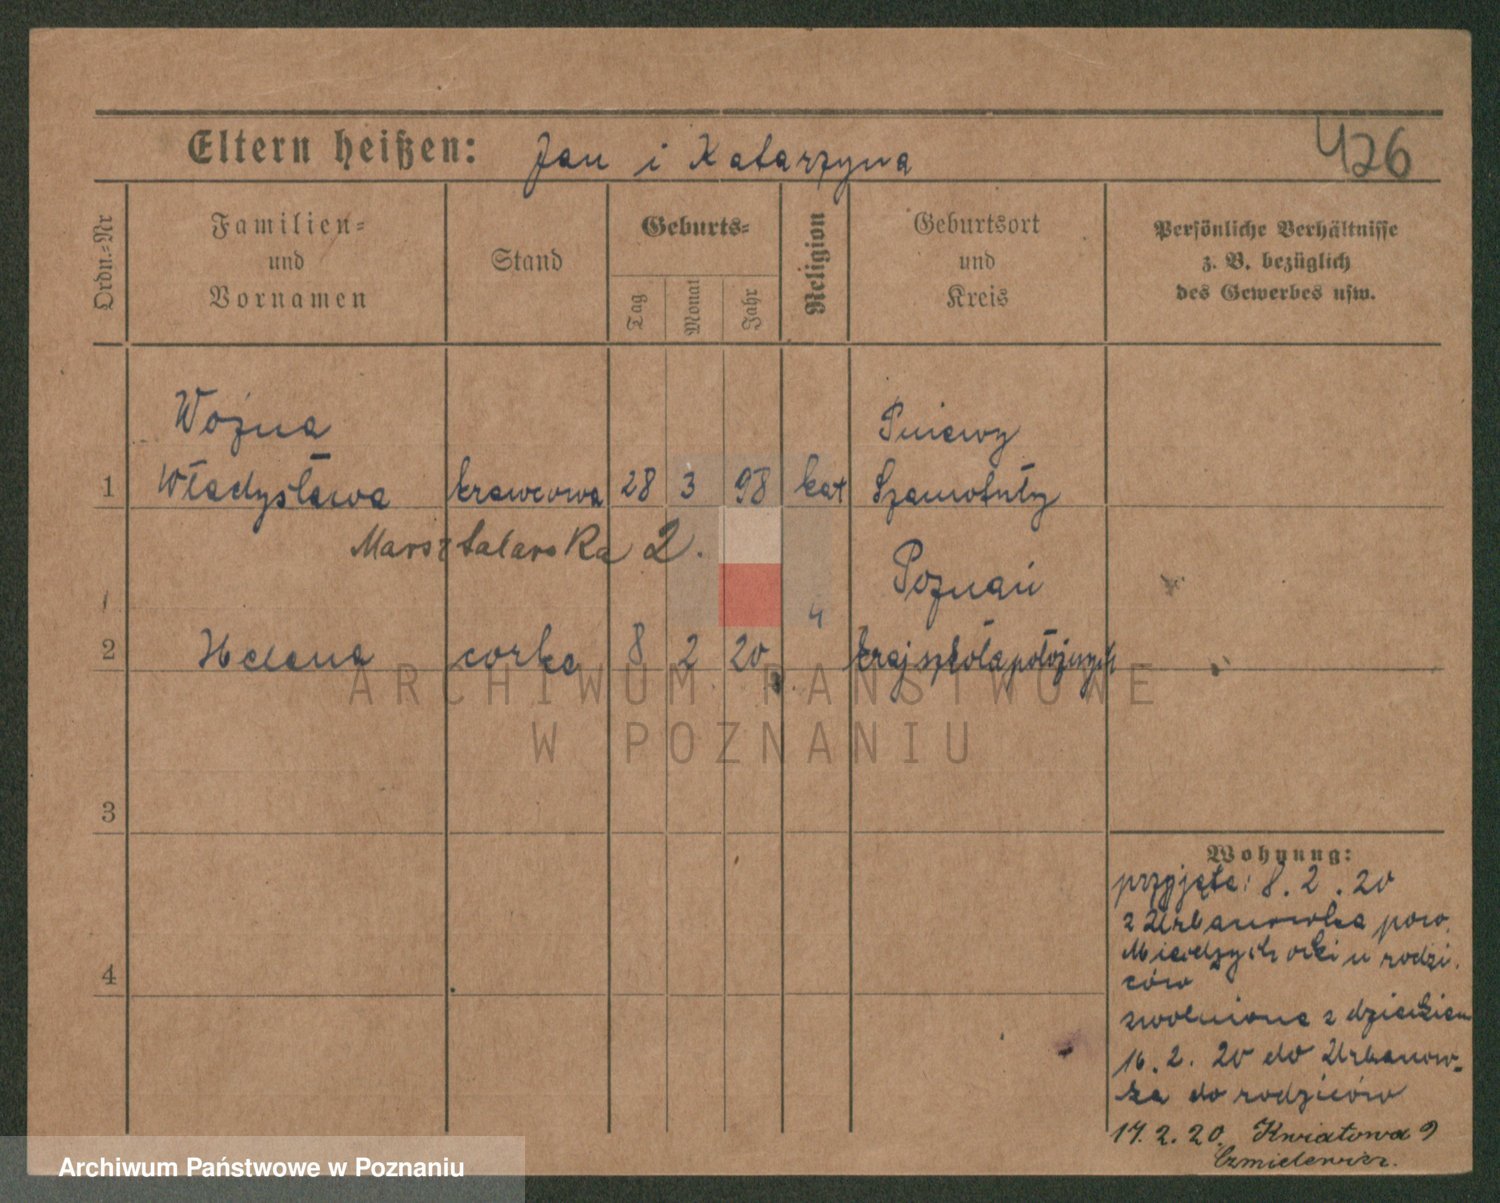 Eltern heißen: Jan i Katarzyna
426
Ordn.-Nr
Familien-
und
Vornamen
Stand
Geburts-
Tag
Monat
Jahr
Religion
Geburtsort
und
Kreis
Persönliche Verhältnisse
z. B. bezüglich
des Gewerbes usw.
Woźna
Pniewy
1 Władysława krawcowa 28 3 98 kat Szamotuły
Marsztalarska 2.
Poznań
2 Helena corka 8 2 20 " kraj szkoła położnych
ARCHIWUM PAŃSTWOWE
W POZNANIU
3
4
Wohnung:
przyjęta: 8. 2. 20
z Urbanowka pow.
Miedzychorki u rodzi-
ców
zwolniona z dzieckiem
16. 2. 20 do Urbanow-
ka do rodziców
17. 2. 20. Kwiatowa 9
Czmielewicz.
Archiwum Państwowe w Poznaniu